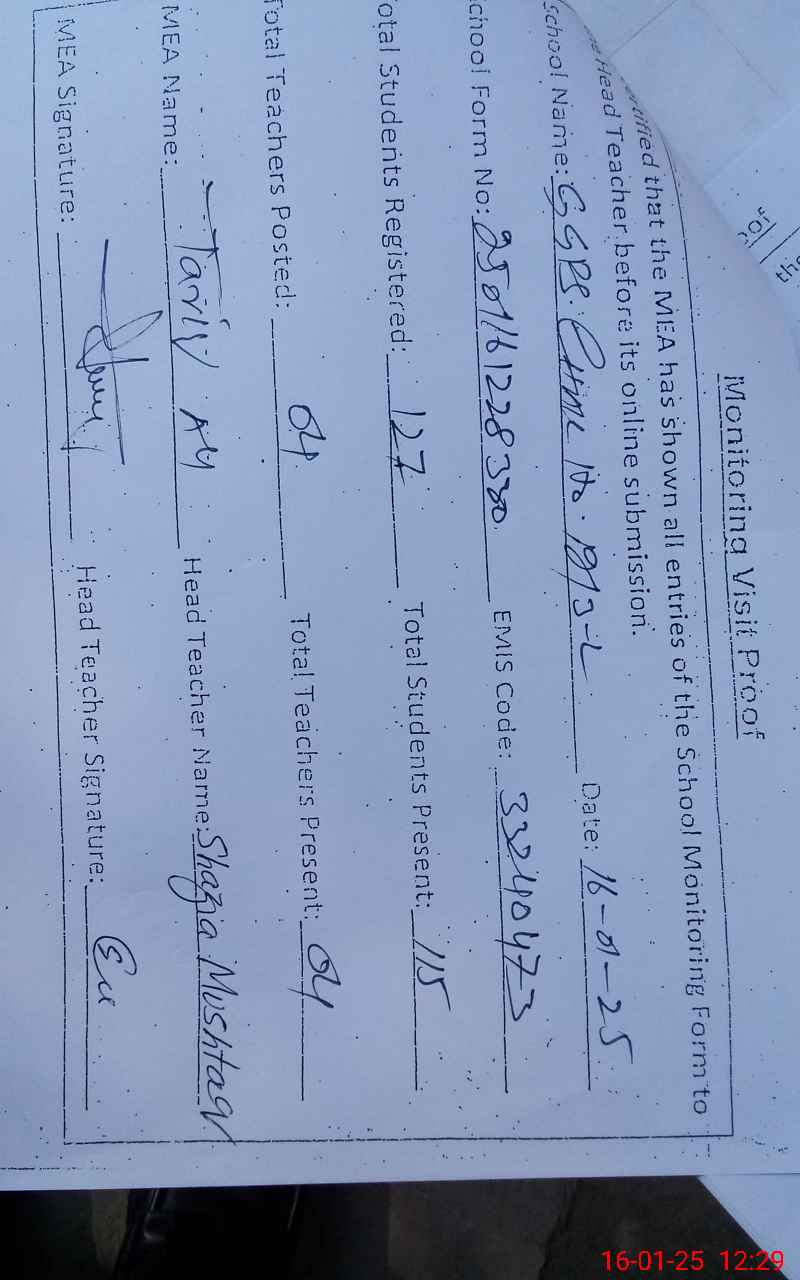 Monitoring Visit Proof
ertified that the MEA has shown all entries of the School Monitoring Form to
he Head Teacher before its online submission.
School Name: GGPS. Date: 16-01-25
School Form No: EMIS Code: 33240473
Total Students Registered: 127 Total Students Present: 115
Total Teachers Posted: 04 Total Teachers Present: 04
MEA Name: Head Teacher Name: Shazia Mushtaq
MEA Signature: Head Teacher Signature:
16-01-25 12:29